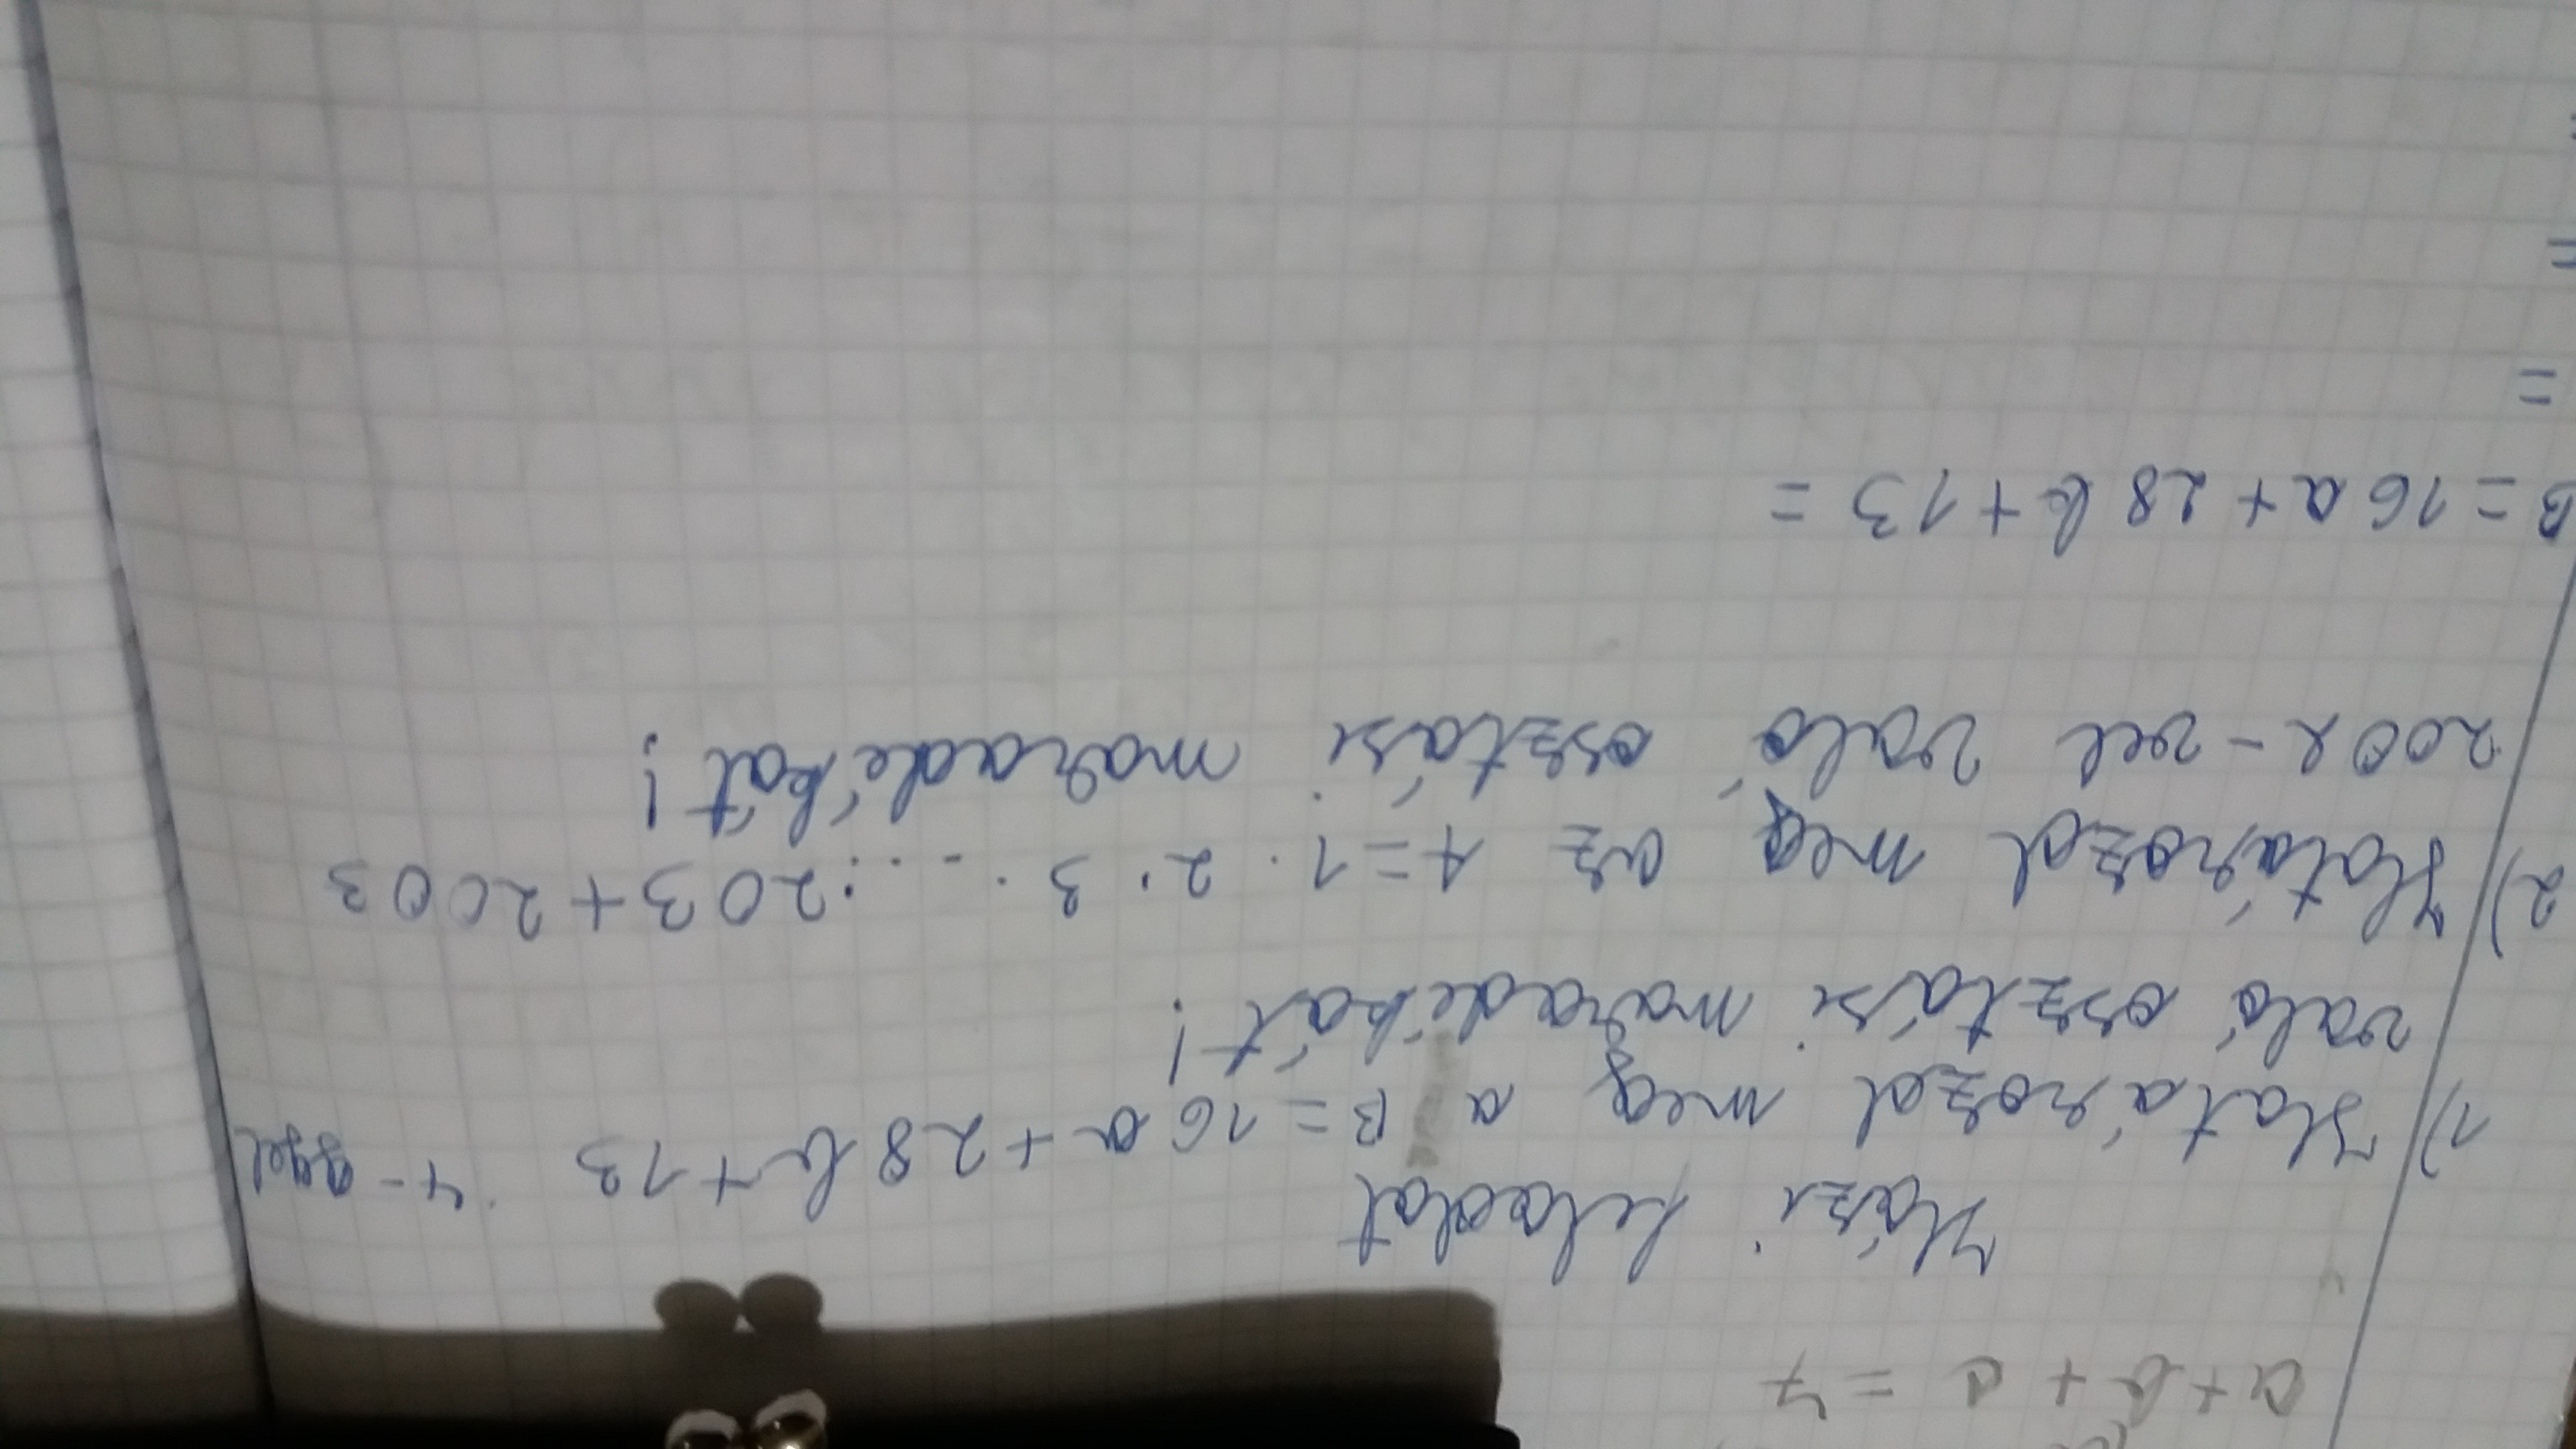 a + b + c = 7
Házi feladat
1) Határozd meg a B = 16a + 28b + 13 4-gyel
való osztási maradékát!
2) Határozd meg az A = 1 · 2 · 3 · ... · 203 + 2003
200 -vel való osztási maradékát!
B = 16a + 28b + 13 =
=
=